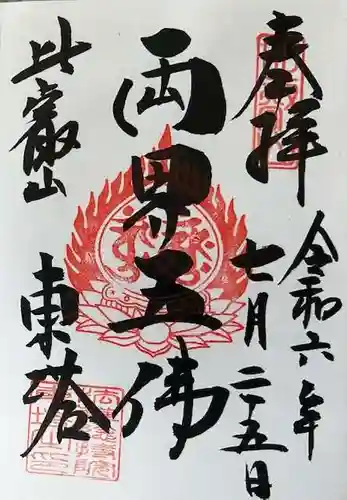 奉拝
令和六年
七月二十五日
両界五佛
比叡山
東塔